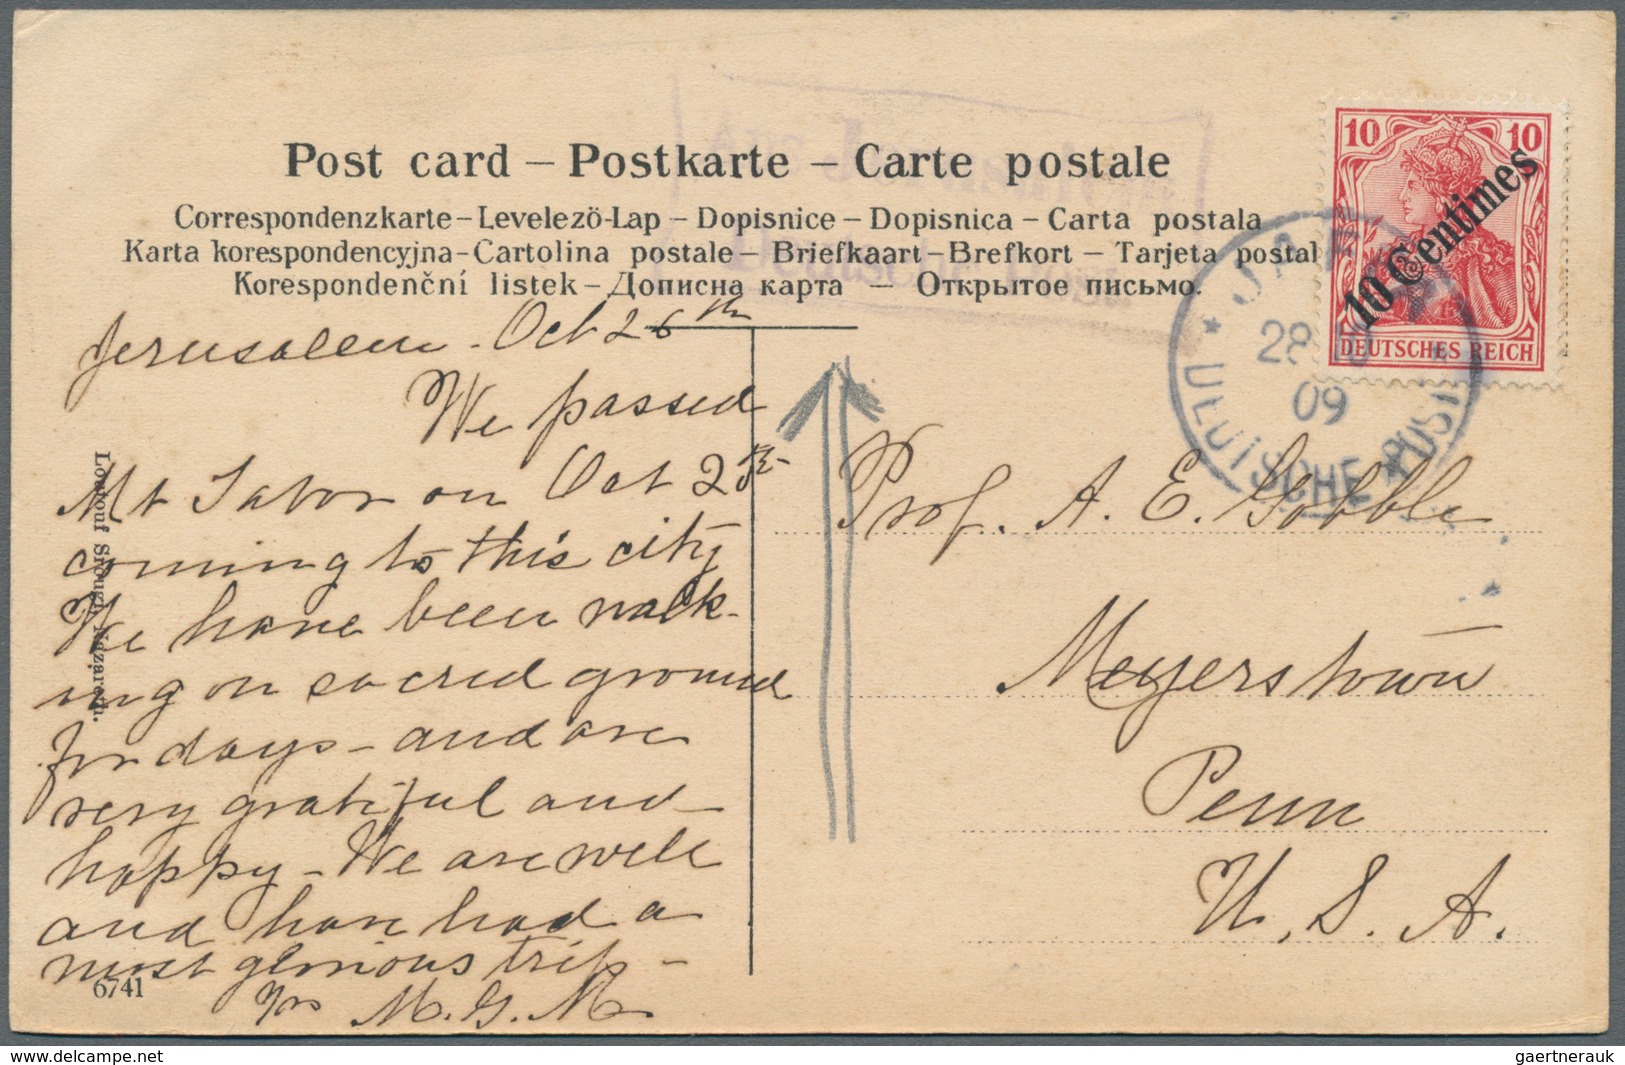 Post card – Postkarte – Carte postale
Correspondenzkarte – Levelezö-Lap – Dopisnice – Dopisnica – Carta postala
Karta korespondencyjna – Cartolina postale – Briefkaart – Brefkort – Tarjeta postal
Korespondenční listek – Дописна карта – Открытое письмо.
10 10
10 Centimes
DEUTSCHES REICH
28
09
DEUTSCHE POST
Jerusalem. Oct 26th
We passed
Mt Tabor on Oct 25th
coming to this city
We have been walk-
ing on sacred ground
for days – and are
very grateful and
happy – We are well
and have had a
most glorious trip –
Yrs M. G. M
Prof. A. E. Gobble
Meyerstown
Penn
U. S. A.
Nazareth.
6741
delcampe.net
gaertnerauk